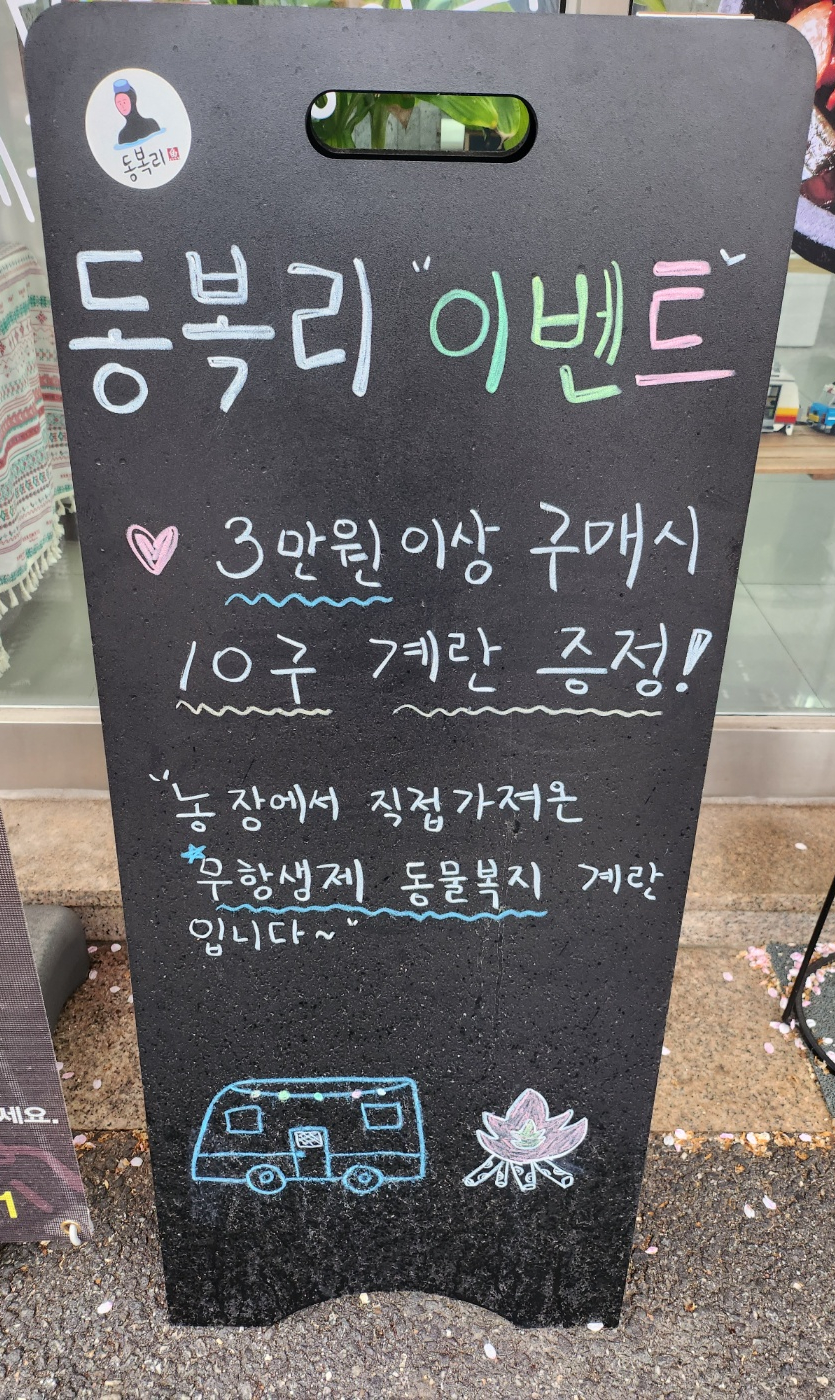 동복리
동복리 "이벤트"
3만원 이상 구매시
10구 계란 증정!
"농장에서 직접 가져온
무항생제 동물복지 계란
입니다~"
세요.
1